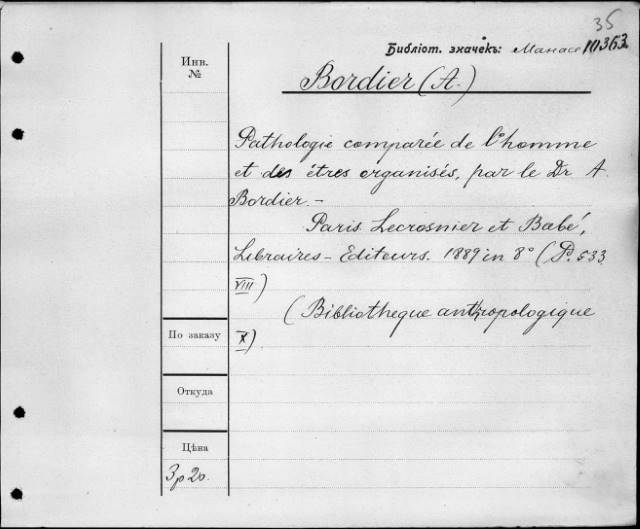 35
Библіот. значекъ: Манасе 10363
Инв.
№
Bordier (A.)
Pathologie comparée de l'homme
et des êtres organisés, par le Dr A.
Bordier. –
Paris Lecrosnier et Babé,
Libraires – Editeurs. 1889 in 8° (P. 533
VIII)
(Bibliotheque antropologique
X).
По заказу
Откуда
Цѣна
3р20.